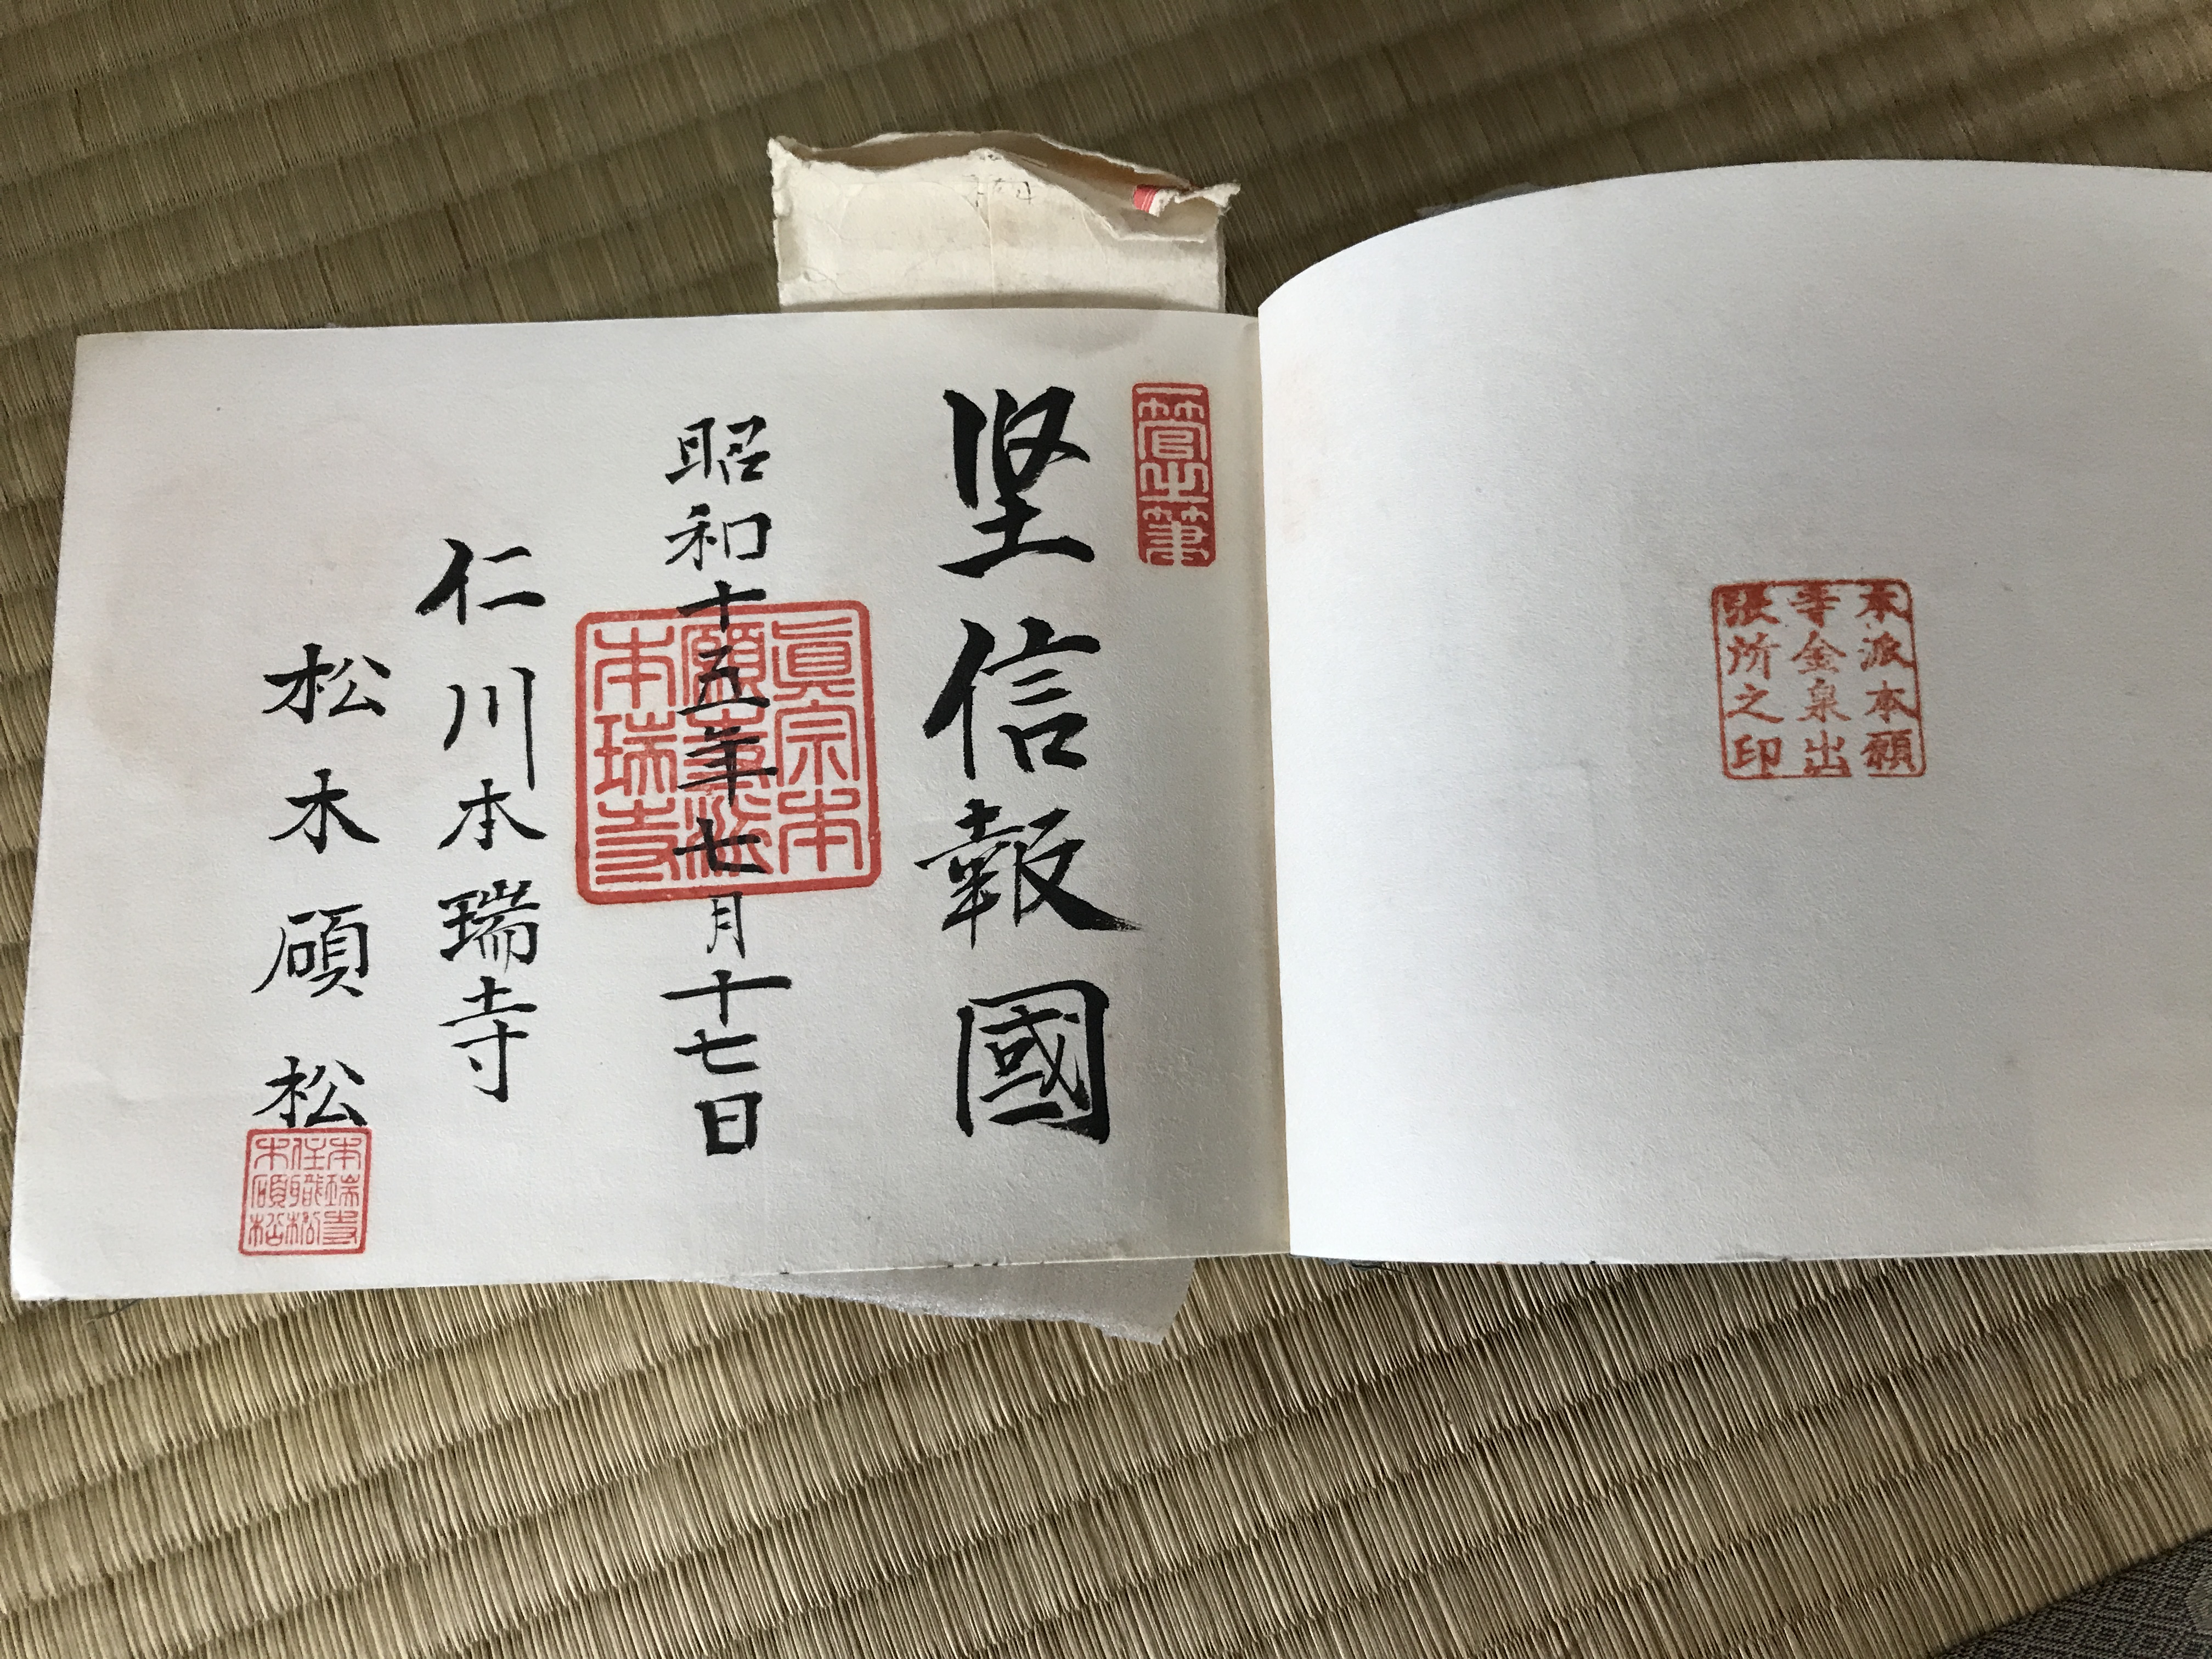 本派本願
寺金泉出
張所之印
一管之筆
坚信報國
昭和十五年七月十七日
眞宗本
願寺派
本瑞寺
仁川本瑞寺
松木碩松
本瑞寺
住職松
木碩松